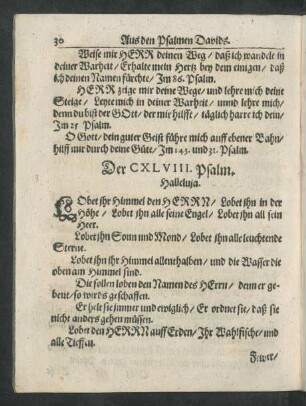 30 Aus den Psalmen Davids.
Weise mir HERR deinen Weg / daß ich wandele in
deiner Warheit / Erhalte mein Hertz bey dem einigen / daß
ich deinen Namen fürchte / Im 86. Psalm.
HERR zeige mir deine Wege / und lehre mich deine
Steige / Leyte mich in deiner Warheit / unnd lehre mich /
denn du bist der GOtt / der mir hilfft / täglich harre ich dein /
Im 25 Psalm.
O Gott / dein guter Geist führe mich auff ebener Bahn /
hilff mir durch deine Güte / Im 143. und 31. Psalm.
Der CXLVIII. Psalm.
Halleluja.
LObet ihr Himmel den HERRN / Lobet ihn in der
Höhe / Lobet ihn alle seine Engel / Lobet ihn all sein
Heer.
Lobet ihn Sonn und Mond / Lobet ihn alle leuchtende
Sterne.
Lobet ihn ihr Himmel allenthalben / und die Wasser die
oben am Himmel sind.
Die sollen loben den Namen des HErrn / denn er ge-
beut / so wirds geschaffen.
Er helt sie immer und ewiglich / Er ordnet sie / daß sie
nicht anders gehen müssen.
Lobet den HERRN auff Erden / Ihr Walfische / und
alle Tieffen.
Fewer /